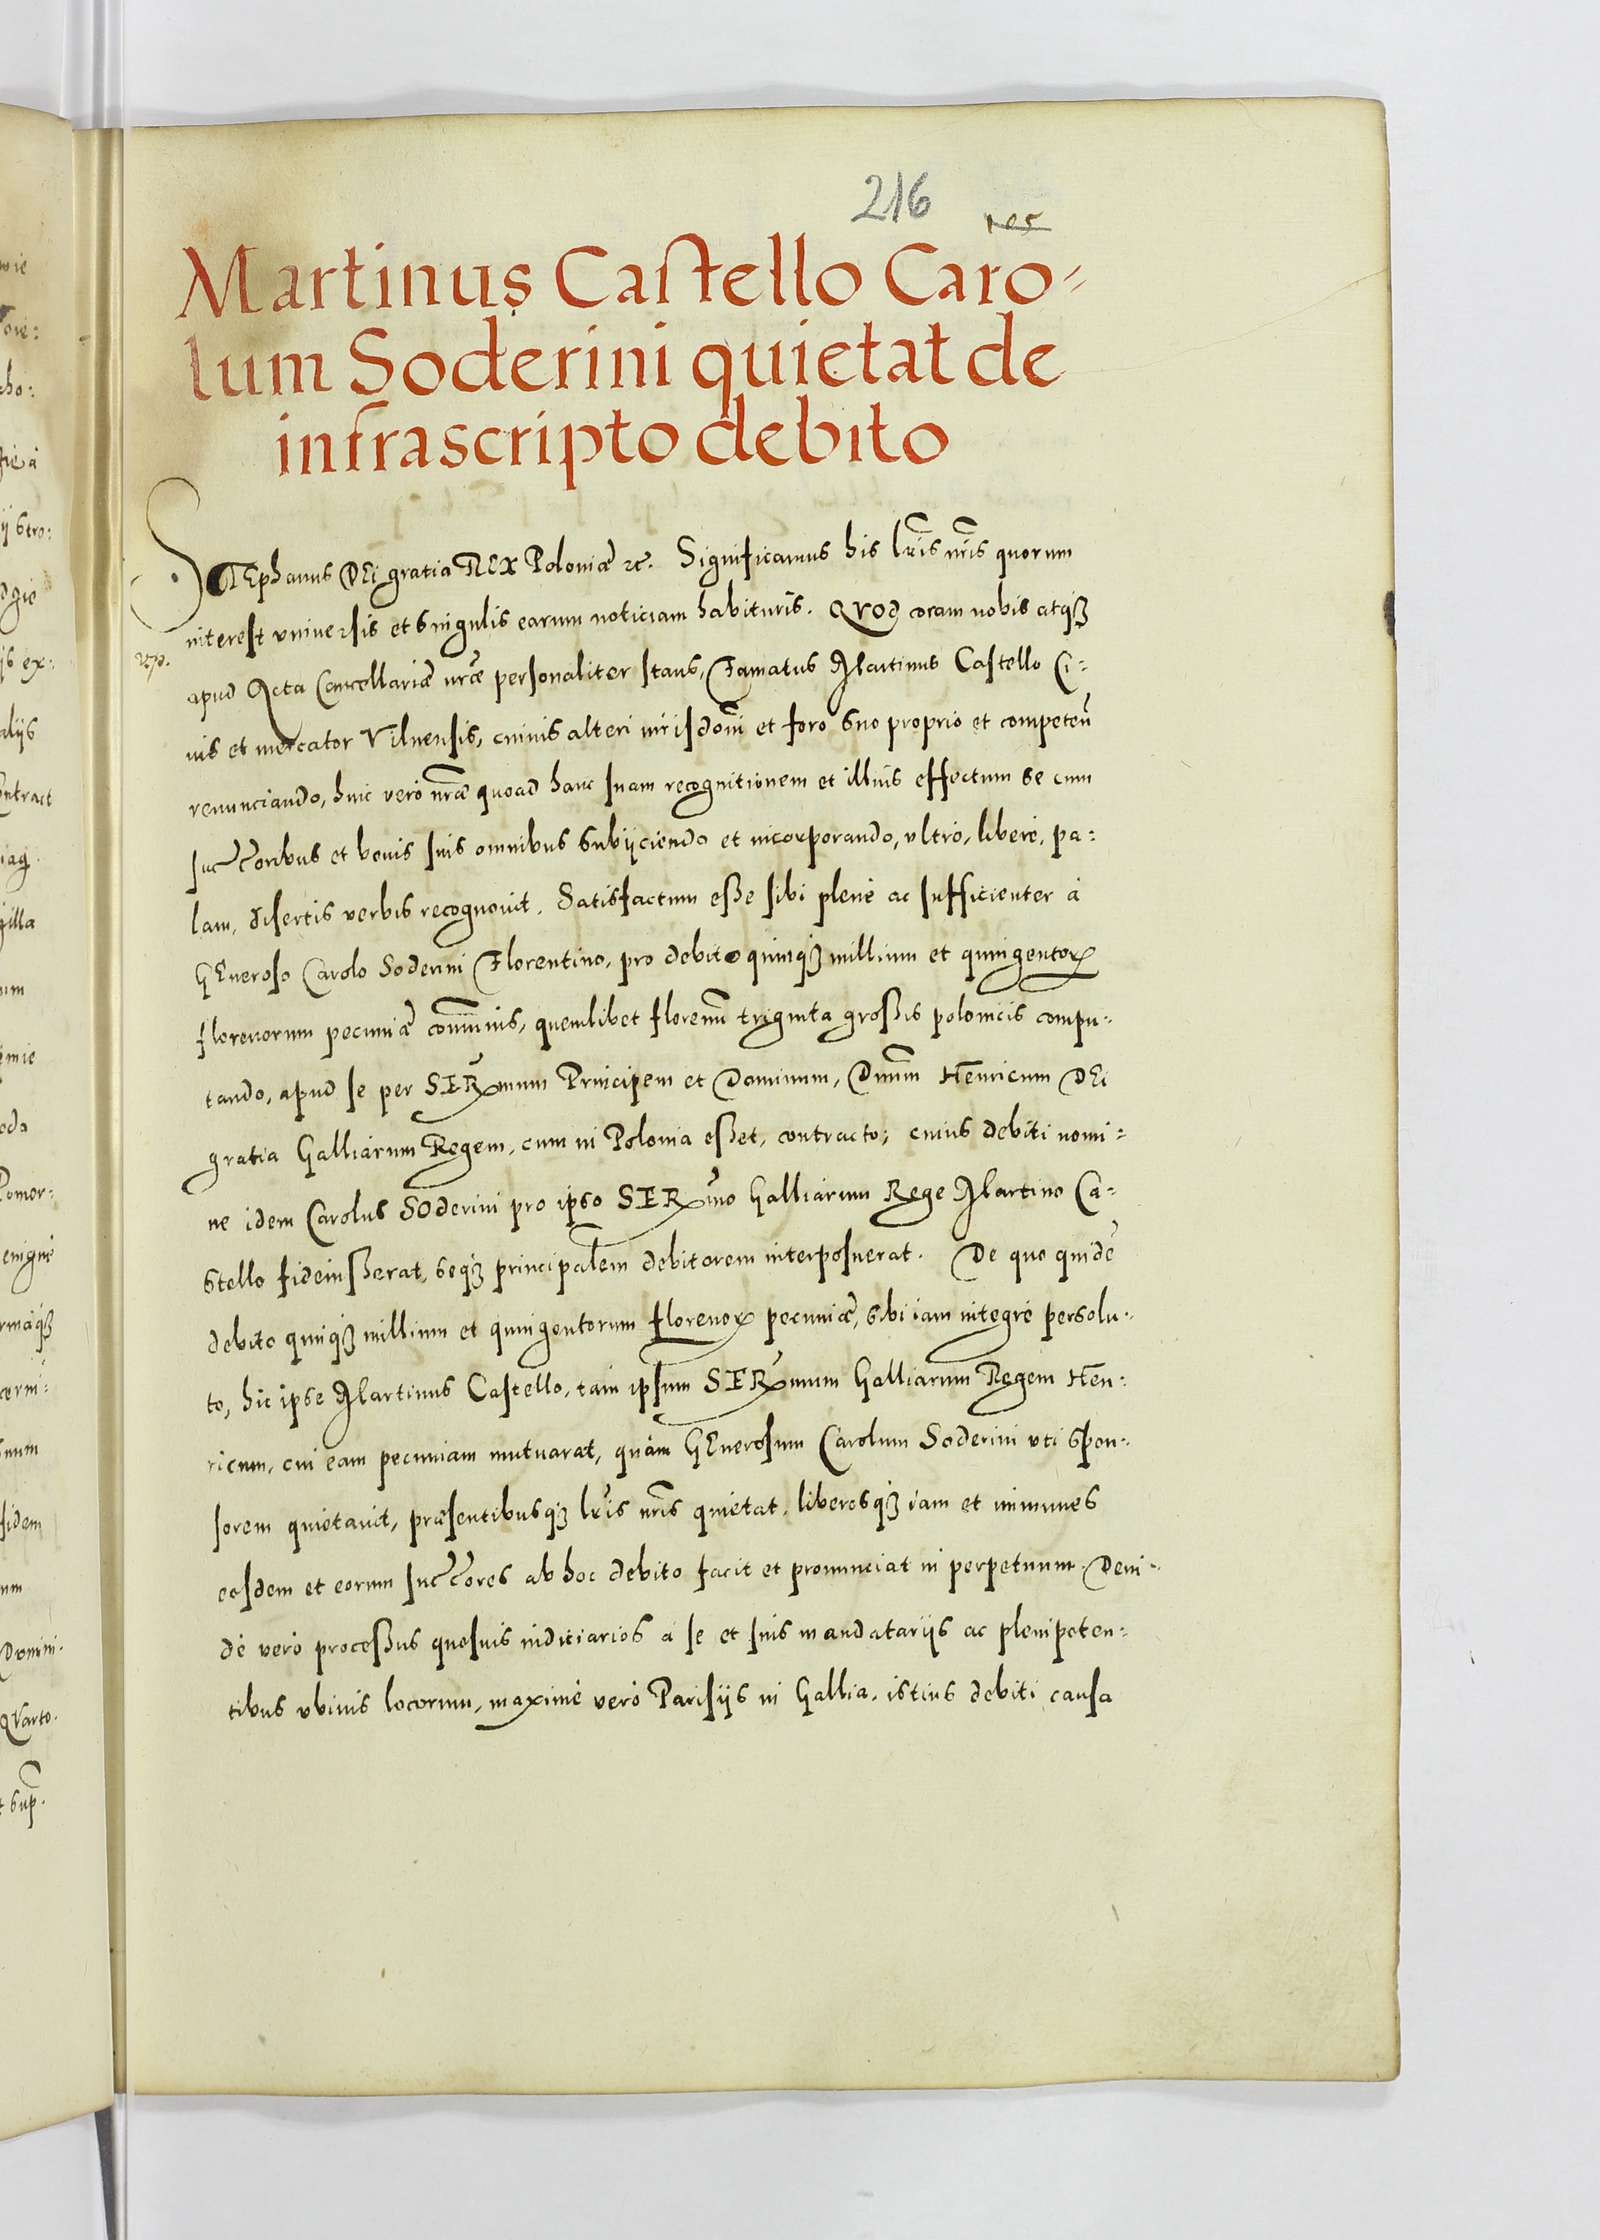 216
Martinus Castello Caro-
lum Soderini quietat de
infrascripto debito
STEphanus DEi gratia REX Poloniæ &c. Significamus his lris nris quorum
interest vniuersis et singulis earum noticiam habituris. QVOd coram nobis atq3
apud Acta Cancellariæ nræ personaliter stans, Famatus Martinus Castello Ci-
uis et mercator Vilnensis, cuiuis alteri iurisdoni et foro suo proprio et competen
renunciando, huic verò nræ quoad hanc suam recognitionem et illius effectum se cum
succoribus et bonis suis omnibus subijciendo et incorporando, vltrò, liberè, pa-
lam, disertis verbis recognouit. Satisfactum esse sibi plenè ac sufficienter à
GEneroso Carolo Soderini Florentino, pro debito quinq3 millium et quingentoꝝ
florenorum pecuniæ communis, quemlibet florenum triginta grossis polonicis compu-
tando, apud se per SERmum Principem et Dominum, Dnum Henricum DEi
gratia Galliarum Regem, cum in Polonia esset, contracto; cuius debiti nomi-
ne idem Carolus SOderini pro ipso SERmo Galliarum Rege Martino Ca-
stello fideiusserat, seq3 principalem debitorem interposuerat. De quo quidē
debito quinq3 millium et quingentorum florenoꝝ pecuniæ, sibi iam integrè persolu-
to, hic ipse Martinus Castello, tam ipsum SERmum Galliarum Regem Hen-
ricum, cui eam pecuniam mutuarat, quàm GEnerosum Carolum Soderini vti spon-
sorem quietauit, præsentibusq3 lris nris quietat, liberosq3 iam et immunes
eosdem et eorum succores ab hoc debito facit et pronunciat in perpetuum. Dein-
dè verò processus quosuis iudiciarios à se et suis mandatarijs ac plenipoten-
tibus vbiuis locorum, maximè verò Parisijs in Gallia, istius debiti causa